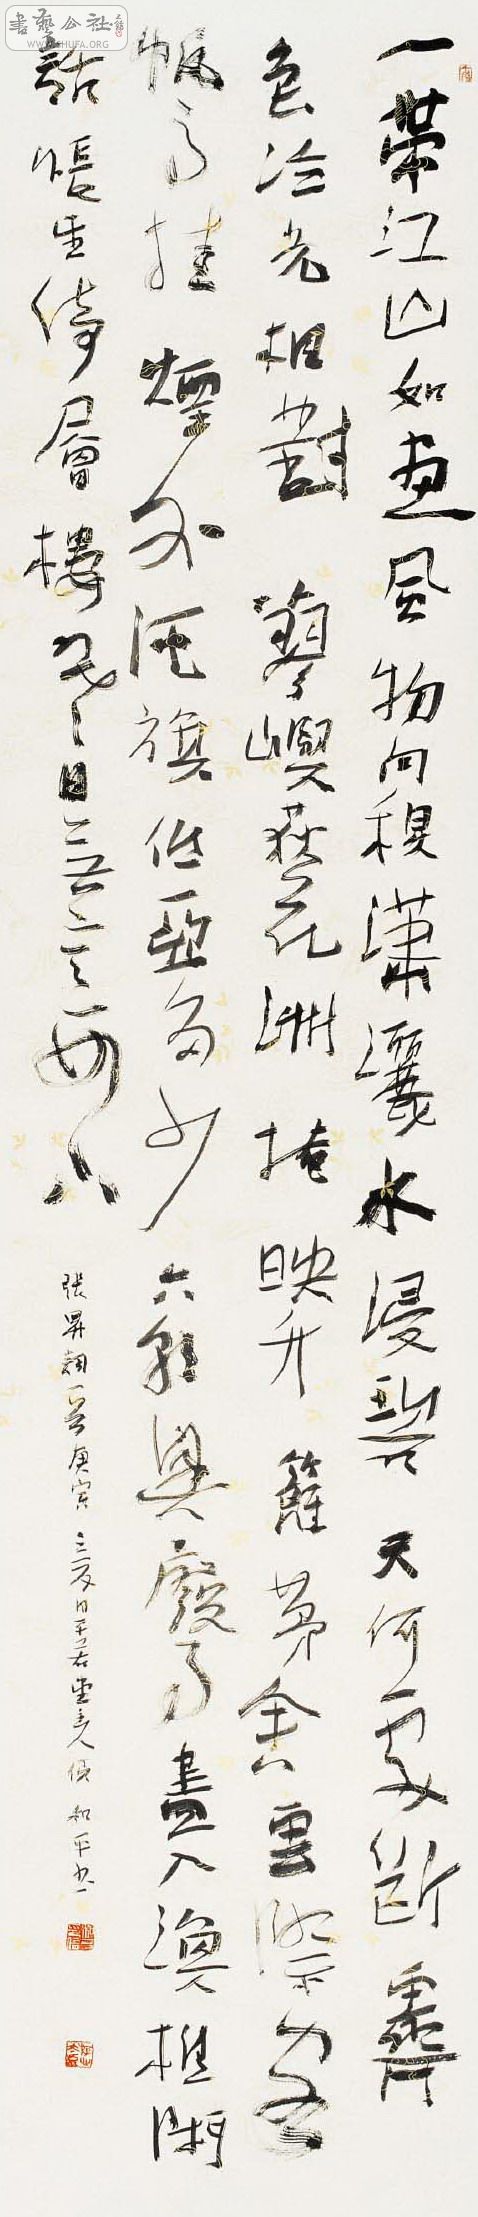 一帶江山如畫風物向秋瀟灑水浸碧天何處斷霽
色冷光相對蓼嶼荻花洲掩映竹籬茅舍雲際客
帆高挂煙外酒旗低亞多少六朝興廢事盡入漁樵閑
話悵望倚層樓寒日無言西下
張昇詞一首庚寅之夏日 和平書
書藝公社
WWW.SHUFA.ORG